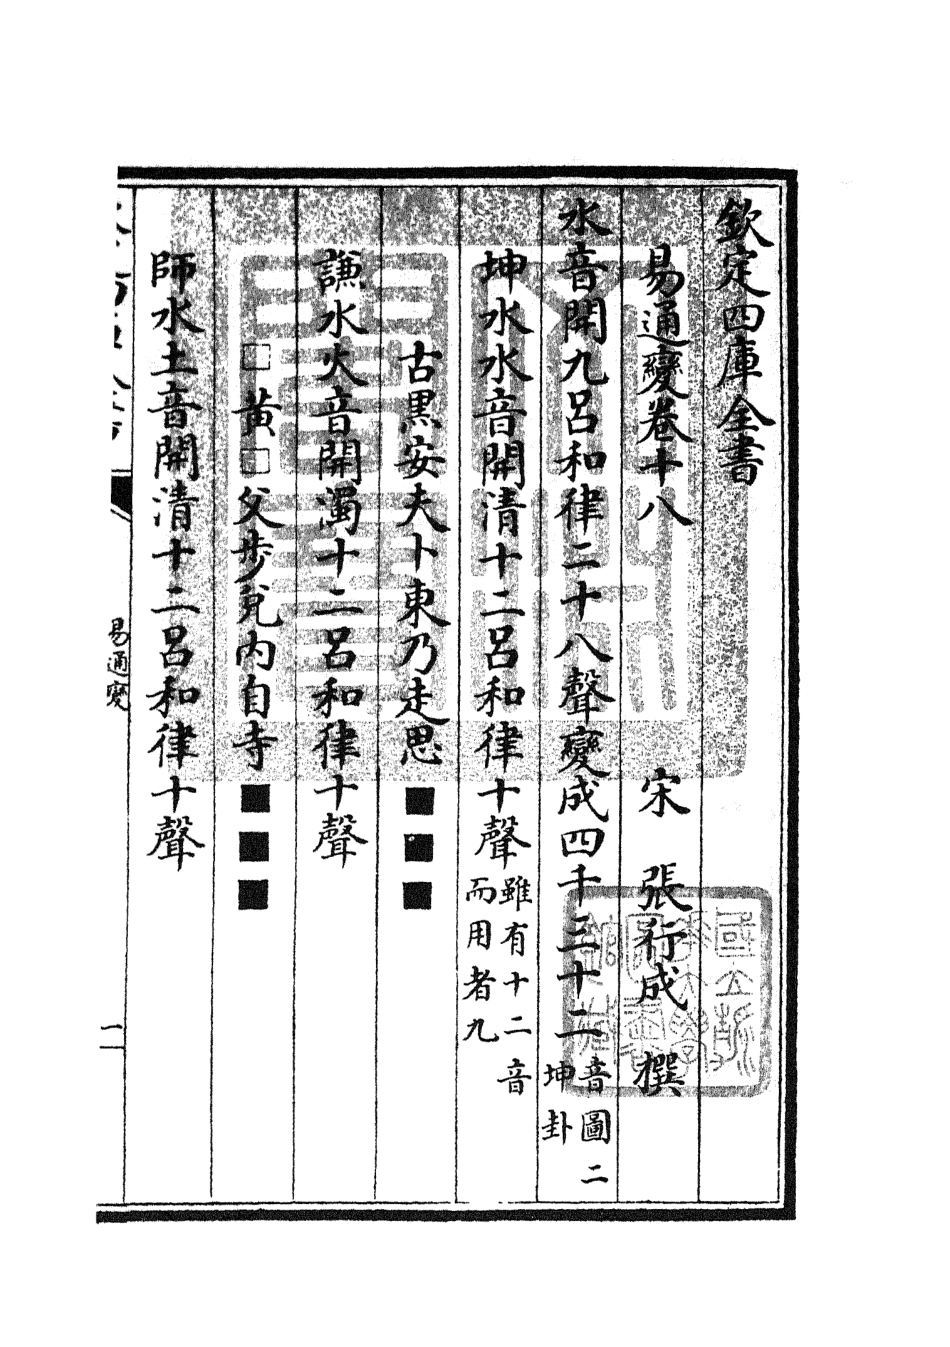 欽定四庫全書
易通變卷十八
宋 張行成 撰
水音開九呂和律二十八聲變成四千三十二音圖二坤卦
坤水水音開清十二呂和律十聲雖有十二音而用者九
古黒安夫卜東乃走思■■■
謙水火音開濁十二呂和律十聲
□黃□父步兌内自寺■■■
師水土音開清十二呂和律十聲
易通變
一